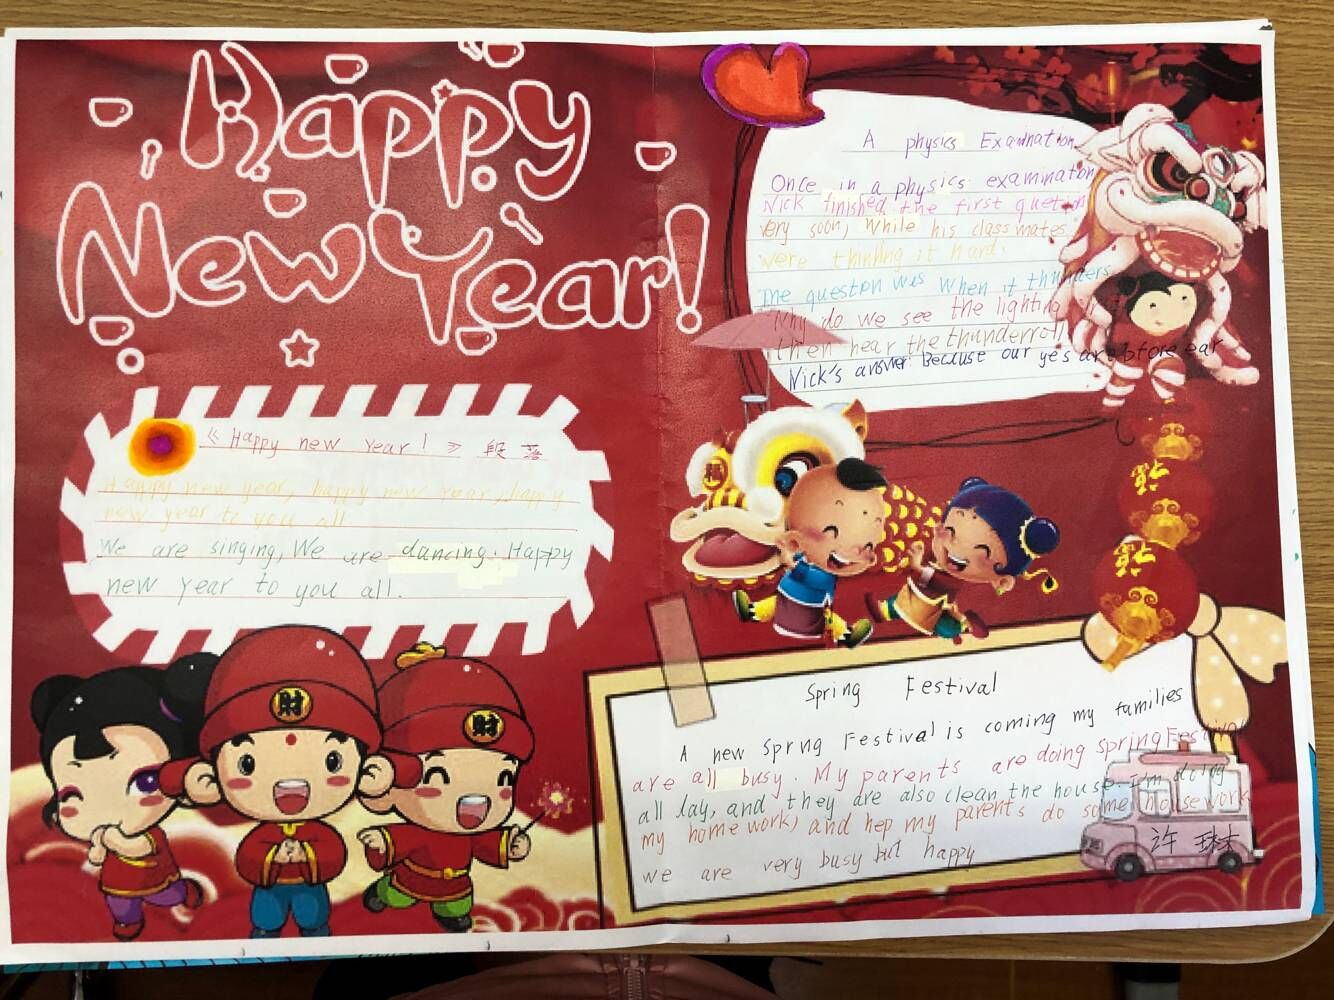 Happy
New Year!
A physics Examination
Once in a physics examination
Nick finished the first quetion
very soon, while his classmates
were thinking it hard.
The question was when it thunders
Why do we see the lighting
then hear the thunderroll
Nick's answer Because our yes are bfore ear
《Happy new year!》 段落
Happy new year, happy new year, happy
new year to you all
We are singing, We are dancing. Happy
new year to you all.
財
財
Spring Festival
A new Sprng Festival is coming my families
are all busy. My parents are doing spring Festival
all lay, and they are also clean the house. I'm doing
my home work, and hep my parents do some housework
we are very busy but happy
许琳